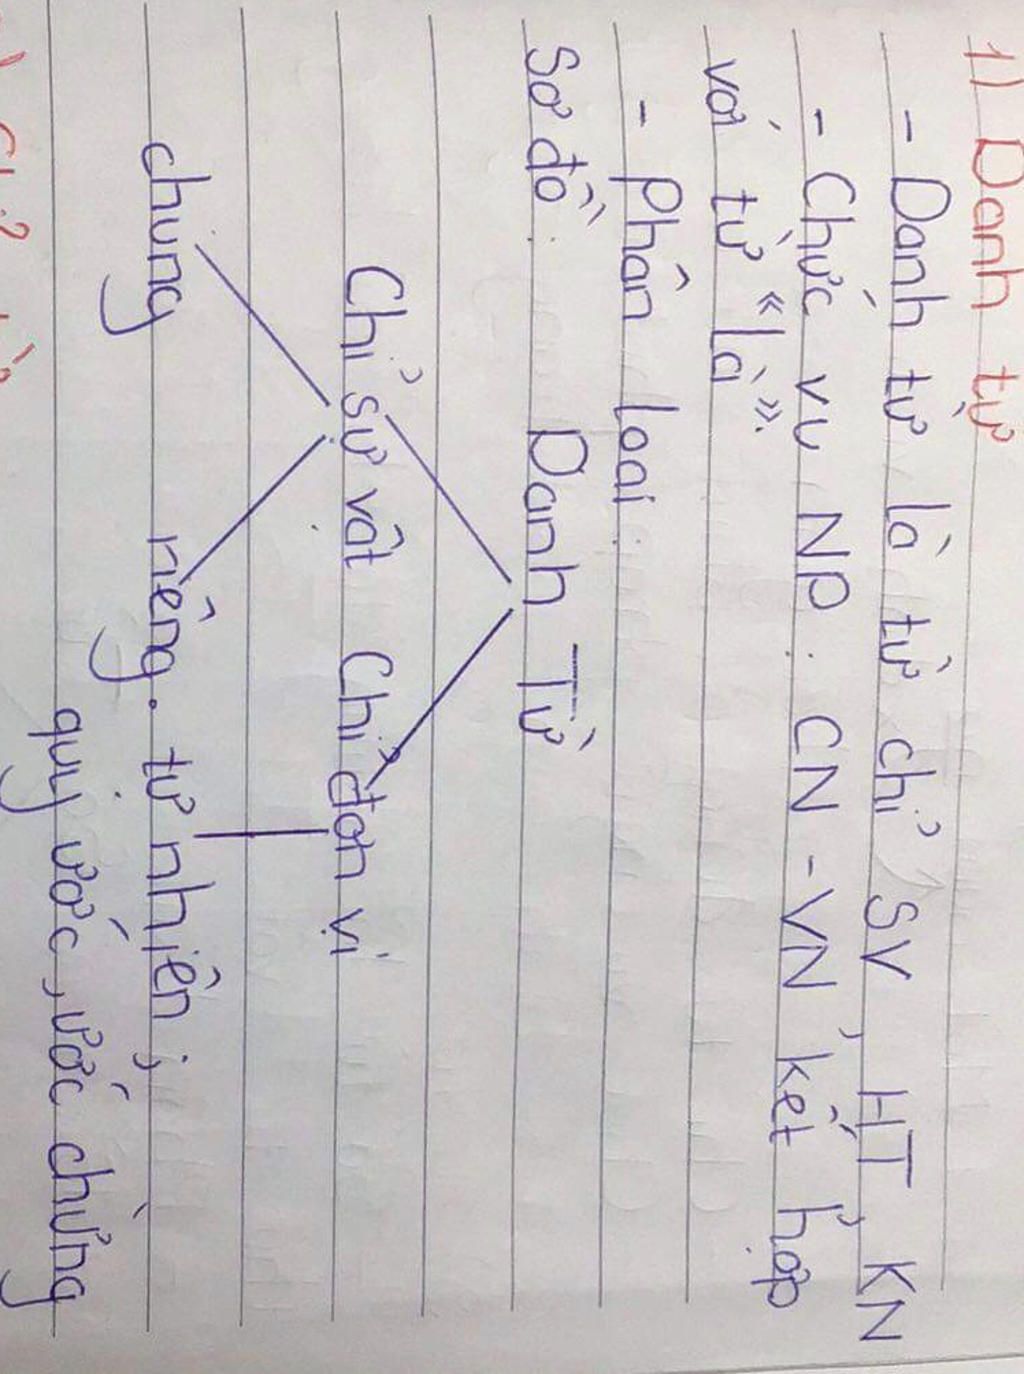 1) Danh từ
- Danh từ là từ chỉ SV, HT, KN
- Chức vụ NP: CN - VN, kết hợp
với từ "là".
- Phân loại:
Sơ đồ: Danh Từ
Chỉ sự vật Chỉ đơn vị
chung riêng. tự nhiên;
quy ước, ước chừng